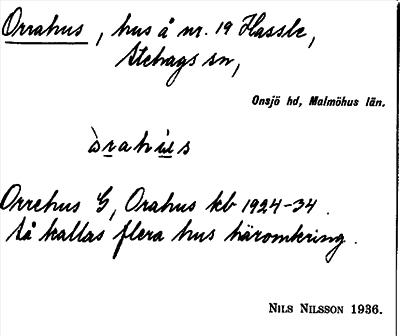 Orrahus, hus å nr. 19 Hassle,
Stehags sn,
Onsjö hd, Malmöhus län.
òrahús
Orrehus G, Orahus kb 1924-34.
Så kallas flera hus häromkring.
NILS NILSSON 1936.